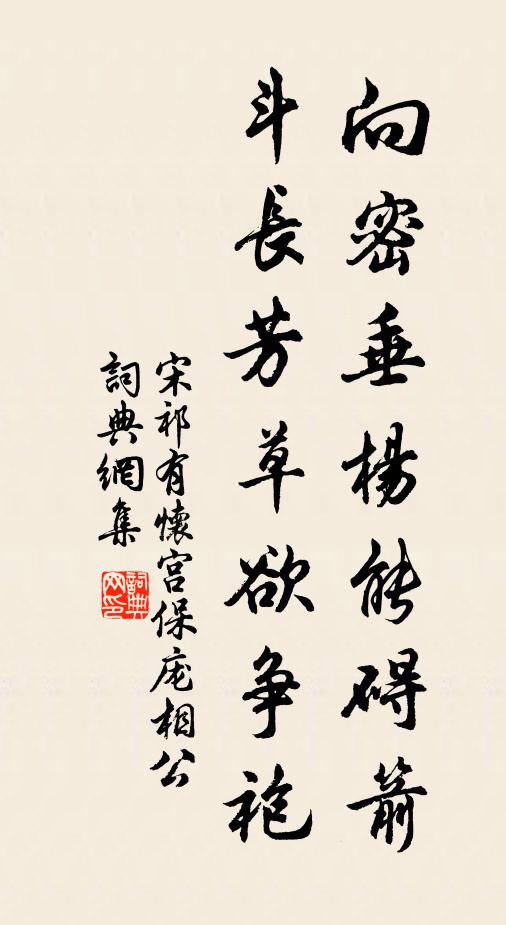 向密垂楊能碍箭
斗長芳草欲争袍
宋祁有懷宮保庞相公
詞典網集
詞典
网印